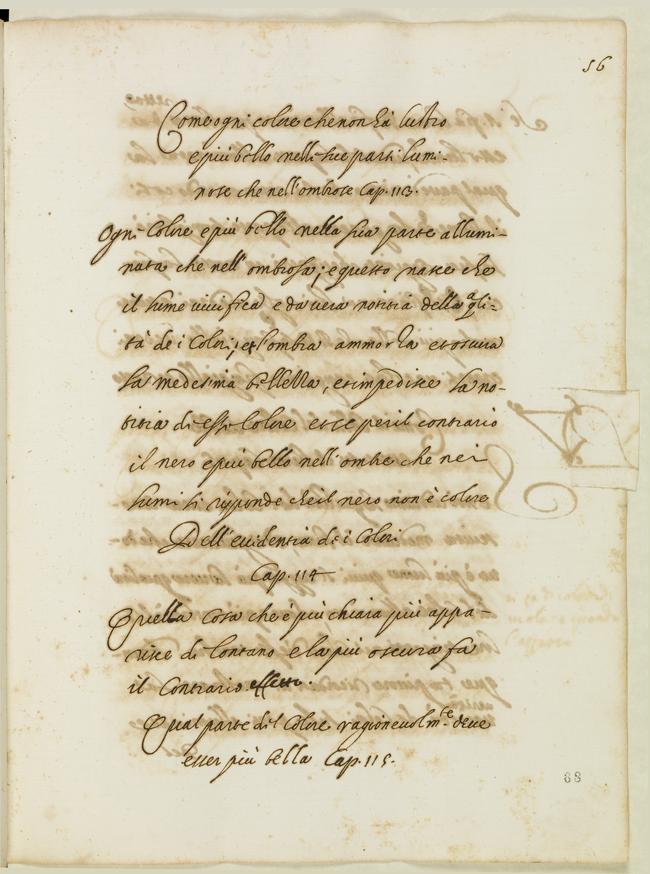 56
Come ogni colore che non hà lustro
e piu bello nelle sue parti lumi-
nose che nell'ombrose Cap. 113.
Ogni Colore e piu bello nella sua parte allumi-
nata che nell' ombrosa; e questo nasce che
il lume vivifica e da vera notitia della qli-
tà de i Colori; et l'ombra ammorza et oscura
la medesima bellezza, et impedisce la no-
titia di esso Colore et se per il contrario
il nero e piu bello nell'ombre che nei
lumi si risponde che il nero non è colore
Dell'evidentia de i Colori
Cap. 114
Quella cosa che è più chiara più appa-
risce di lontano e la più oscura fa
il Contrario effetto.
Qual parte del Colore ragionevolm.te deve
esser più bella Cap. 115.
68